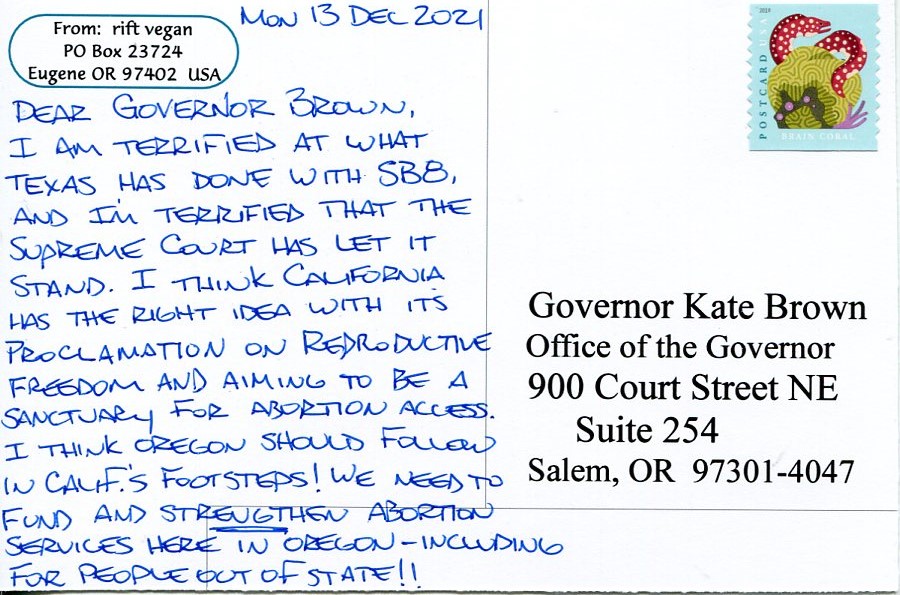 MON 13 DEC 2021
From: rift vegan
PO Box 23724
Eugene OR 97402 USA
DEAR GOVERNOR BROWN,
I AM TERRIFIED AT WHAT
TEXAS HAS DONE WITH SB8,
AND I'M TERRIFIED THAT THE
SUPREME COURT HAS LET IT
STAND. I THINK CALIFORNIA
HAS THE RIGHT IDEA WITH ITS
PROCLAMATION ON REPRODUCTIVE
FREEDOM AND AIMING TO BE A
SANCTUARY FOR ABORTION ACCESS.
I THINK OREGON SHOULD FOLLOW
IN CALIF.'S FOOTSTEPS! WE NEED TO
FUND AND STRENGTHEN ABORTION
SERVICES HERE IN OREGON - INCLUDING
FOR PEOPLE OUT OF STATE!!
2019
POSTCARD USA
BRAIN CORAL
Governor Kate Brown
Office of the Governor
900 Court Street NE
Suite 254
Salem, OR 97301-4047